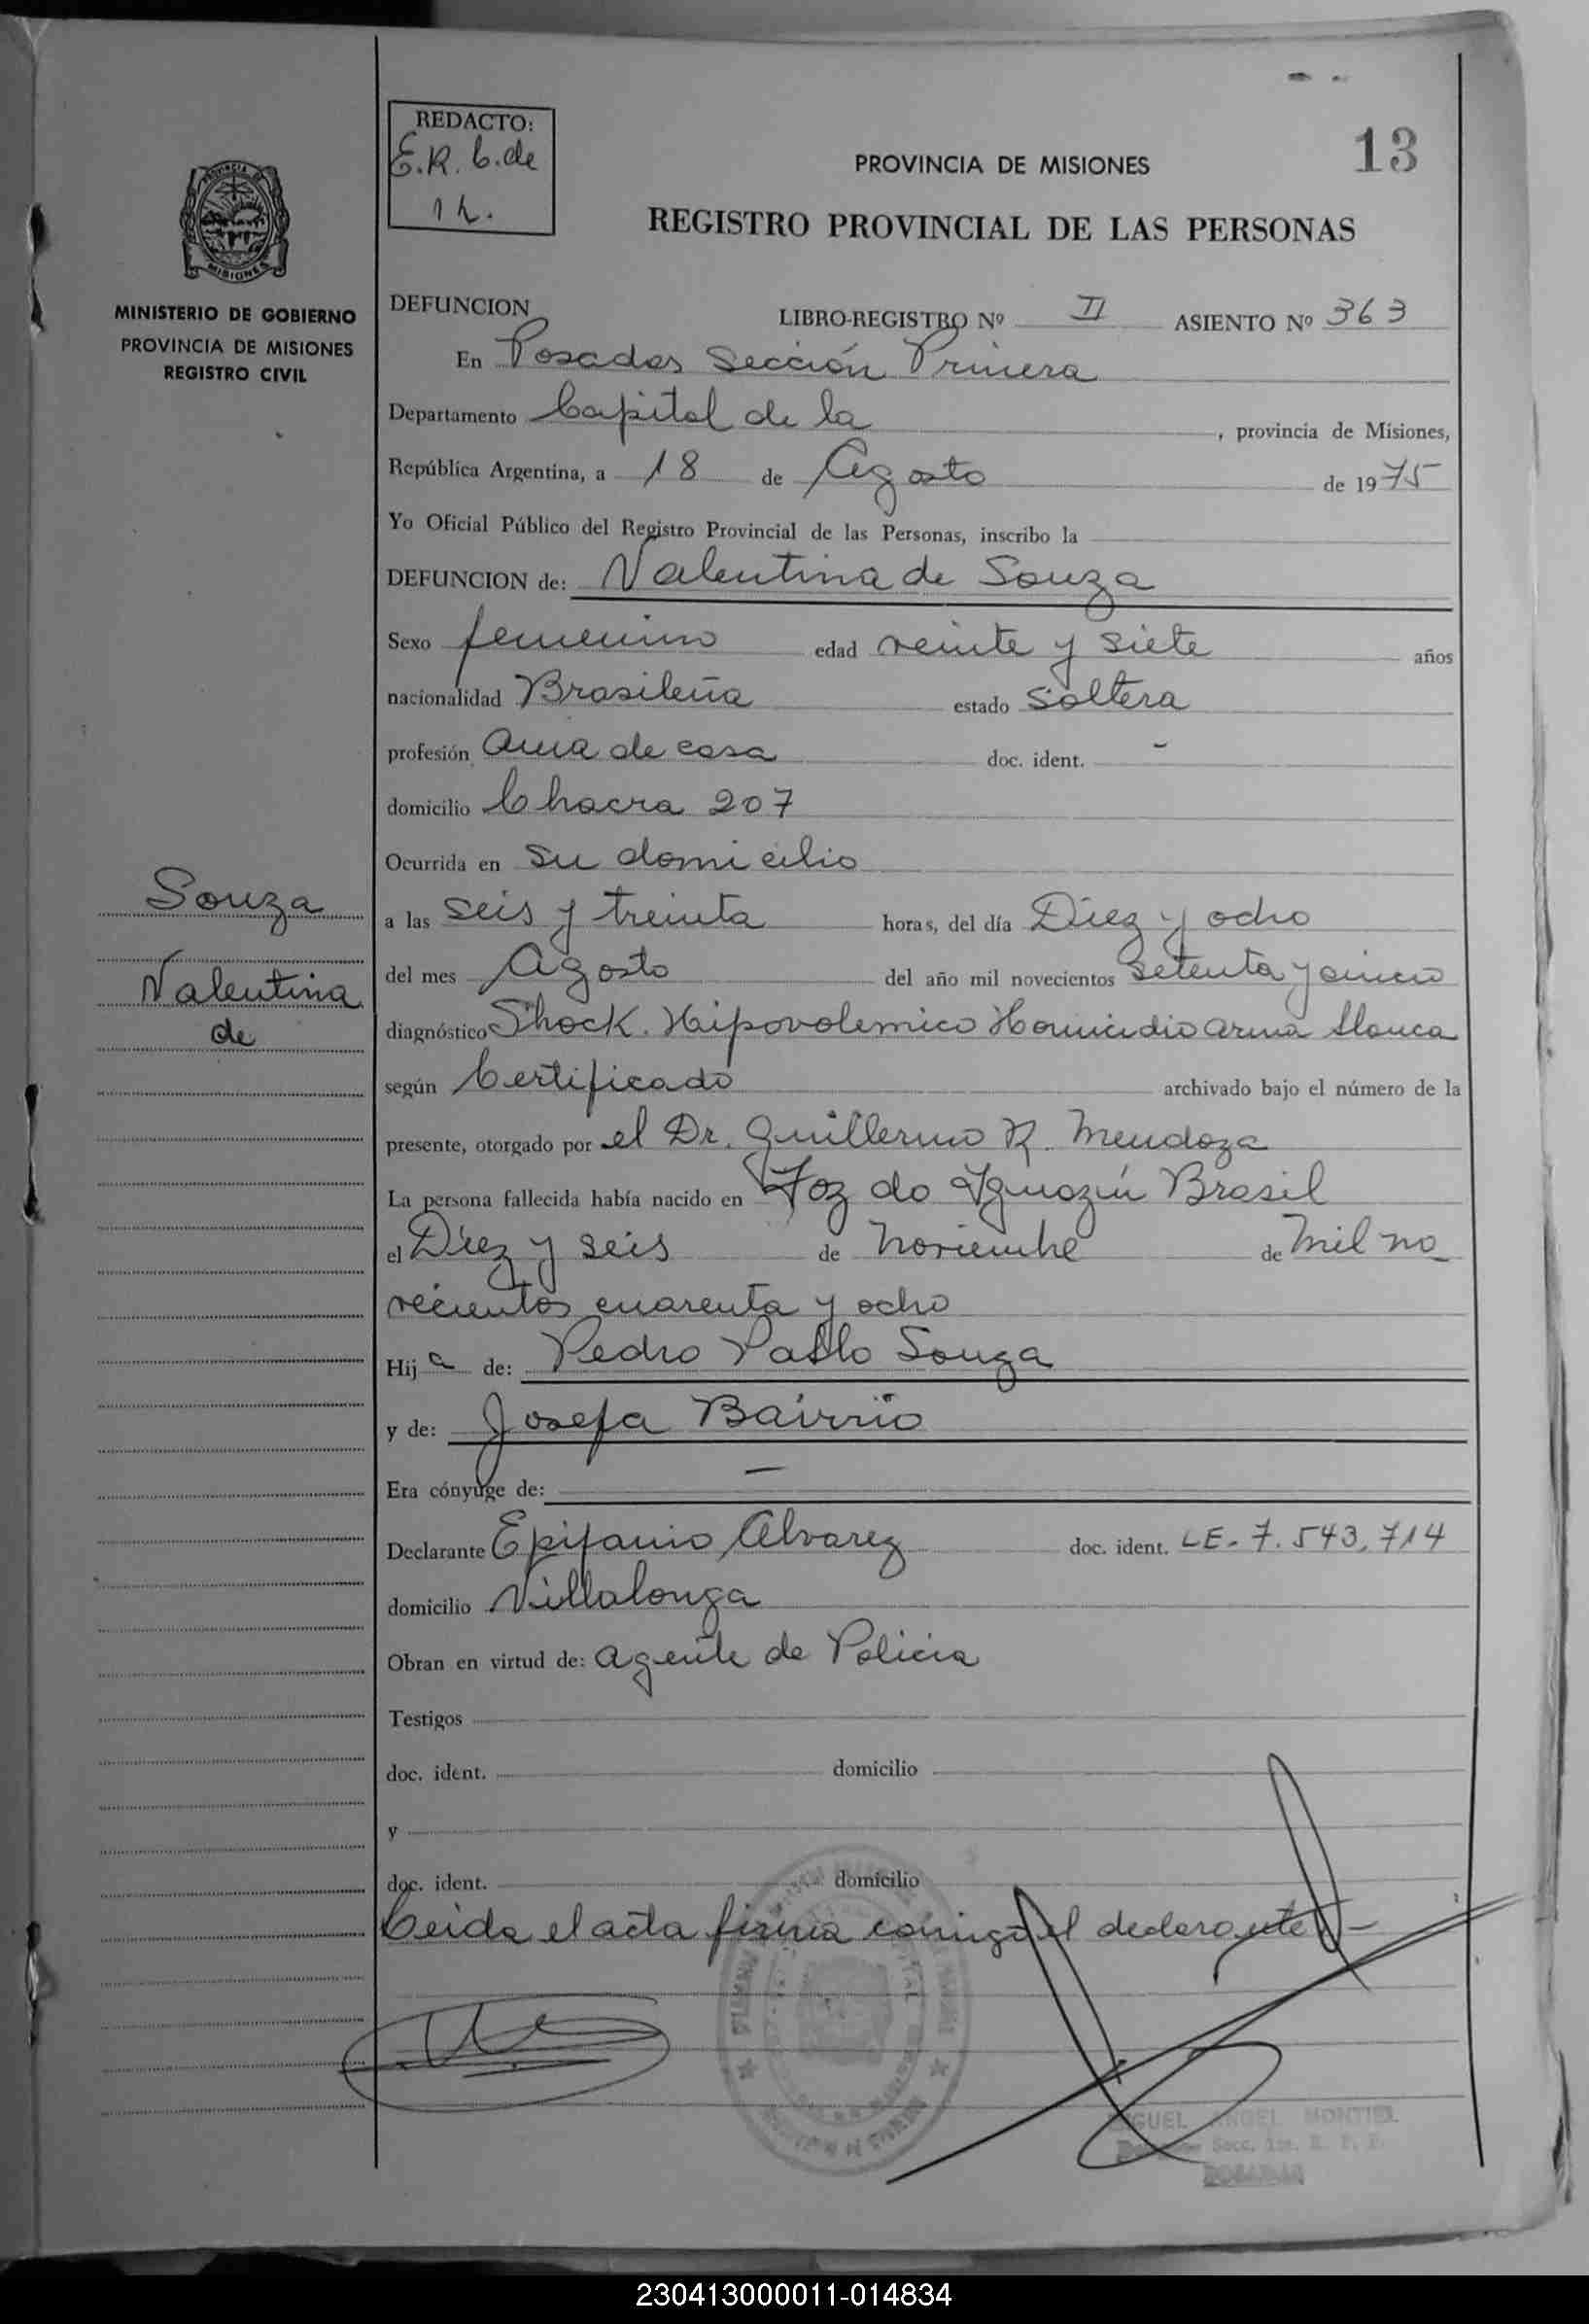 13
REDACTO:
E.R. b. de
PROVINCIA DE MISIONES
REGISTRO PROVINCIAL DE LAS PERSONAS
MISIONES
MINISTERIO DE GOBIERNO
PROVINCIA DE MISIONES
REGISTRO CIVIL
DEFUNCION
LIBRO-REGISTRO Nº II ASIENTO Nº 363
En Posadas Sección Primera
Departamento Capital de la , provincia de Misiones,
República Argentina, a 18 de Agosto de 1975
Yo Oficial Público del Registro Provincial de las Personas, inscribo la
DEFUNCION de: Valentina de Souza
Sexo femenino edad veinte y siete años
nacionalidad Brasileña estado Soltera
profesión Ama de casa doc. ident. -
domicilio Chacra 207
Ocurrida en su domicilio
Souza
Valentina
de
a las seis y treinta horas, del día Diez y ocho
del mes Agosto del año mil novecientos setenta y cinco
diagnóstico Shock. Hipovolemico Homicidio arma blanca
según Certificado archivado bajo el número de la
presente, otorgado por el Dr. Guillermo R. Mendoza
La persona fallecida había nacido en Foz do Iguazú Brasil
el Diez y seis de noviembre de Mil no
vecientos cuarenta y ocho
Hija de: Pedro Pablo Souza
y de: Josefa Bairrio
Era cónyuge de: —
Declarante Epifanio Alvarez doc. ident. LE-7.543.714
domicilio Villalonga
Obran en virtud de: Agente de Policia
Testigos
doc. ident. domicilio
y
doc. ident. domicilio
Leida el acta firma conmigo el declarante -
ANGEL MONTIEL
POSADAS
230413000011-014834